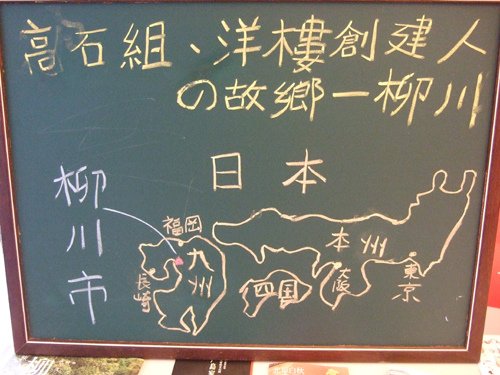 高石組、洋樓創建人
の故鄉—柳川
日本
柳川市
福岡
九州
長崎
四国
本州
大阪
東京